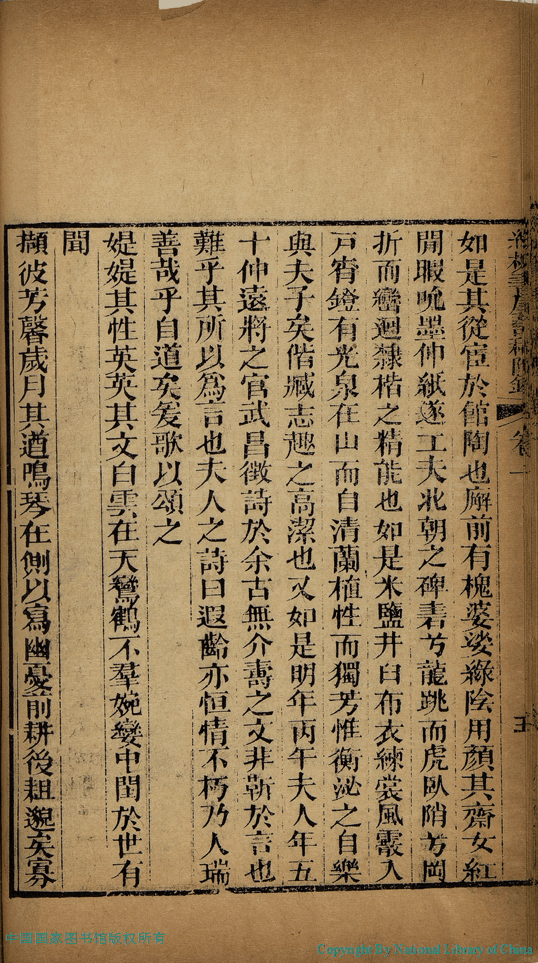 如是其從宦於館陶也廨前有槐婆娑綠陰用顏其齋女紅
閒暇吮墨伸紙遂工夫北朝之碑書芀龍跳而虎臥陗芀岡
折而巒迴隸楷之精能也如是米鹽井臼布衣練裳風霰入
戸宵鐙有光泉在山而自清蘭植性而獨芳惟衡泌之自樂
與夫子矣偕臧志趣之高潔也又如是明年丙午夫人年五
十仲遠將之官武昌徵詩於余古無介壽之文非靳於言也
難乎其所以為言也夫人之詩曰遐齡亦恒情不朽乃人瑞
善哉乎自道矣爰歌以頌之
媞媞其性英英其文白雲在天鸞鶴不羣婉孌中閨於世有
聞
擷彼芳馨歲月其遒鳴琴在側以寫幽憂前耕後耡邈矣寡
卷一
中国国家图书馆版权所有
Copyright By National Library of China